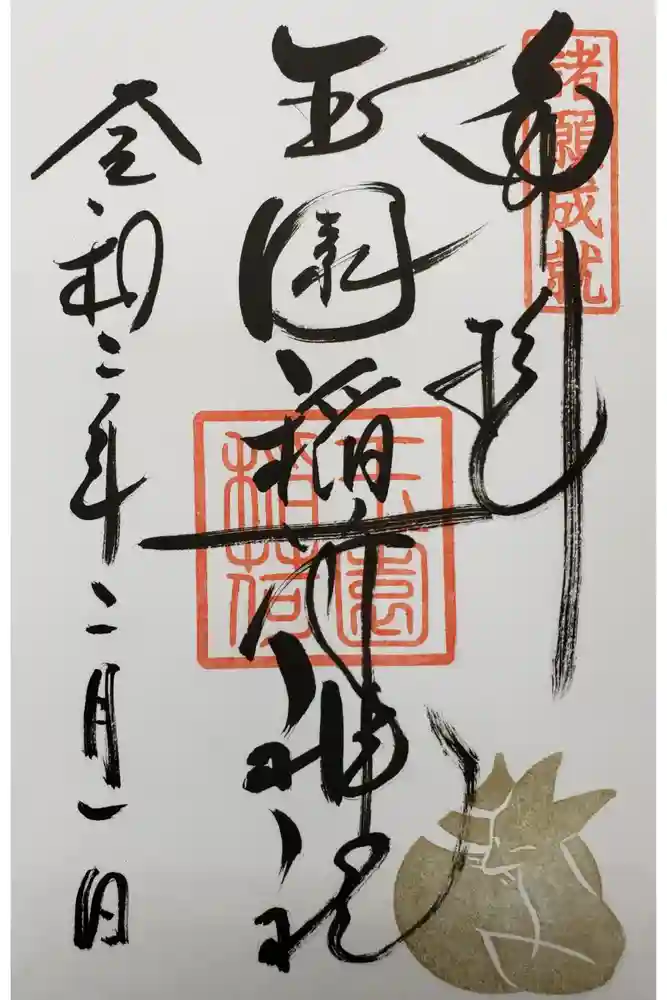 諸願成就
奉拝
玉園稲荷神社
玉園稲荷
令和二年二月一日